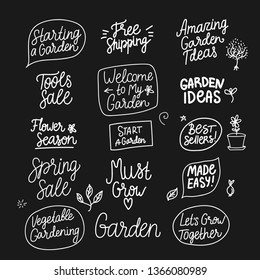 Starting
a Garden
Free
Shipping
Amazing
Garden
Ideas
Tools
Sale
Welcome
to My
Garden
GARDEN
IDEAS
Flower
Season
START
A GARDEN
BEST
SELLERS!
Spring
Sale
Must
Grow
MADE
EASY!
Vegetable
Gardening
Garden
Let's Grow
Together
shutterstock.com · 1366080989